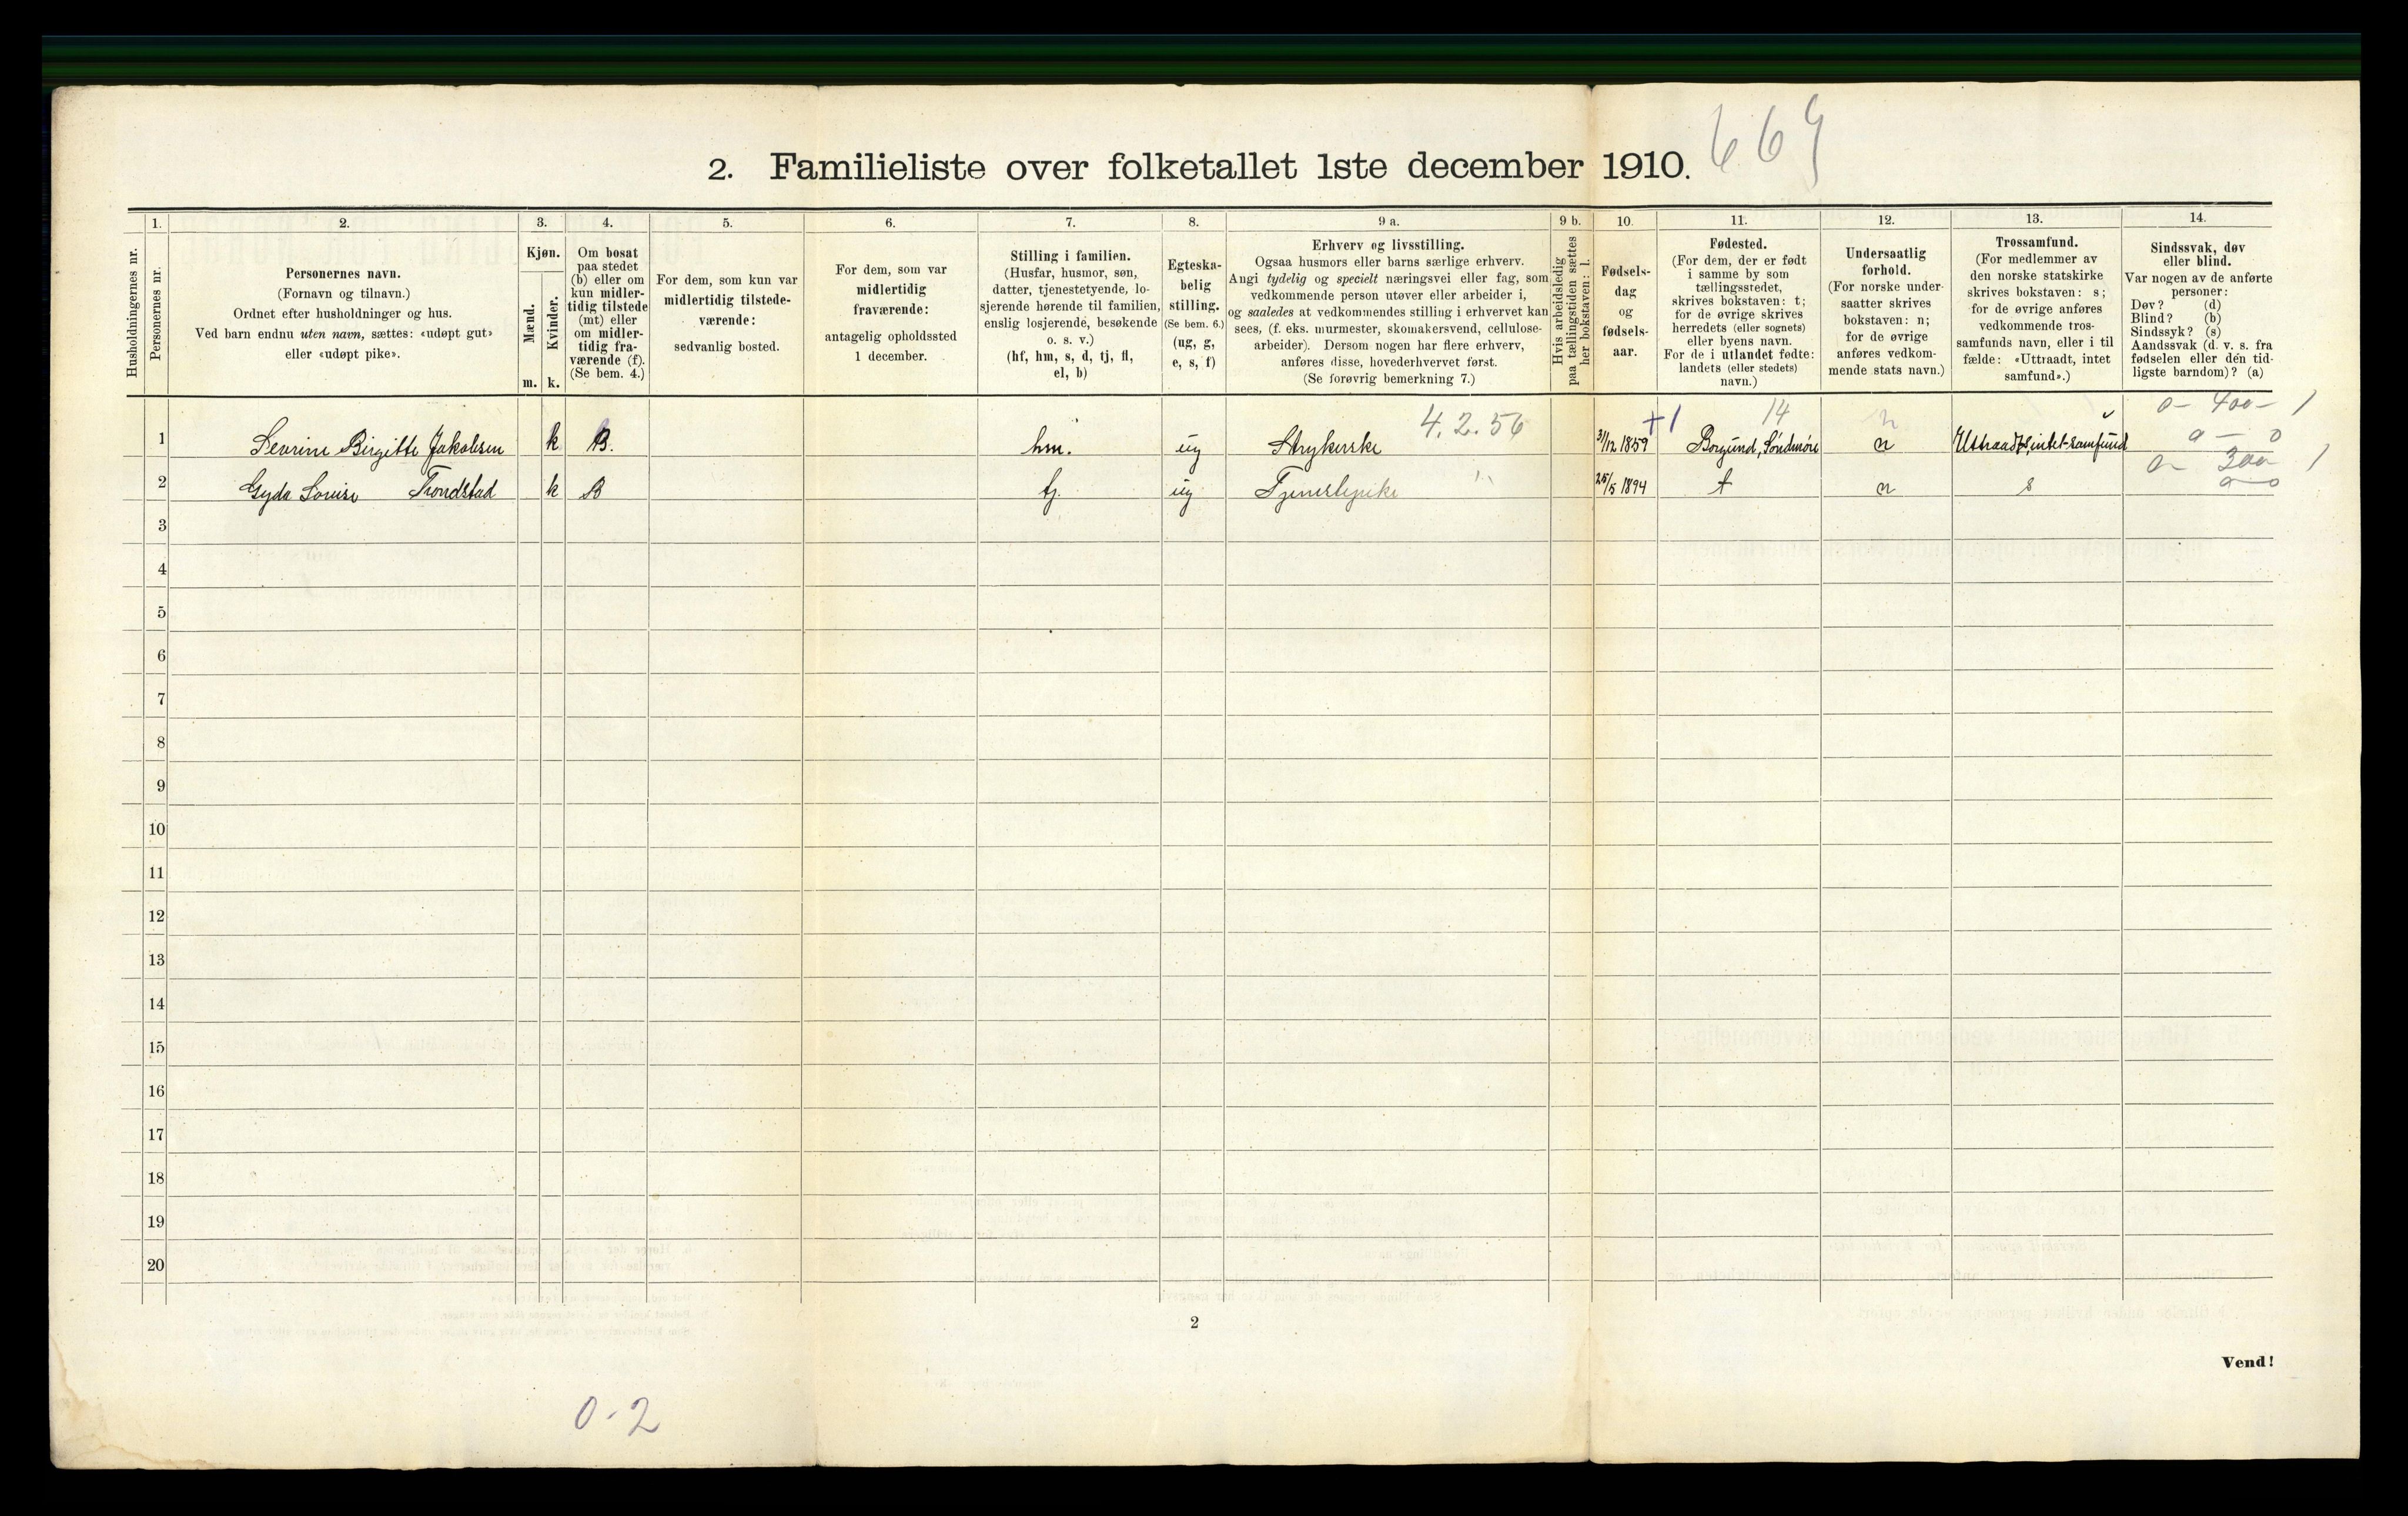 2. Familieliste over folketallet 1ste december 1910.
Husholdningernes nr.
1.
Personernes nr.
2.
Personernes navn.
(Fornavn og tilnavn.)
Ordnet efter husholdninger og hus.
Ved barn endnu uten navn, sættes: «udøpt gut»
eller «udøpt pike».
3.
Kjøn.
Mænd.
Kvinder.
m. k.
4.
Om bosat
paa stedet
(b) eller om
kun midler-
tidig tilstede
(mt) eller
om midler-
tidig fra-
værende (f).
(Se bem. 4.)
5.
For dem, som kun var
midlertidig tilstede-
værende:
sedvanlig bosted.
6.
For dem, som var
midlertidig
fraværende:
antagelig opholdssted
1 december.
7.
Stilling i familien.
(Husfar, husmor, søn,
datter, tjenestetyende, lo-
sjerende hørende til familien,
enslig losjerende, besøkende
o. s. v.)
(hf, hm, s, d, tj, fl,
el, b)
8.
Egteska-
belig
stilling.
(Se bem. 6.)
(ug, g,
e, s, f)
9 a.
Erhverv og livsstilling.
Ogsaa husmors eller barns særlige erhverv.
Angi tydelig og specielt næringsvei eller fag, som
vedkommende person utøver eller arbeider i,
og saaledes at vedkommendes stilling i erhvervet kan
sees, (f. eks. murmester, skomakersvend, cellulose-
arbeider). Dersom nogen har flere erhverv,
anføres disse, hovederhvervet først.
(Se forøvrig bemerkning 7.)
9 b.
Hvis arbeidsledig
paa tællingstiden sættes
her bokstaven: l.
10.
Fødsels-
dag
og
fødsels-
aar.
11.
Fødested.
(For dem, der er født
i samme by som
tællingsstedet,
skrives bokstaven: t;
for de øvrige skrives
herredets (eller sognets)
eller byens navn.
For de i utlandet fødte:
landets (eller stedets)
navn.)
12.
Undersaatlig
forhold.
(For norske under-
saatter skrives
bokstaven: n;
for de øvrige
anføres vedkom-
mende stats navn.)
13.
Trossamfund.
(For medlemmer av
den norske statskirke
skrives bokstaven: s;
for de øvrige anføres
vedkommende tros-
samfunds navn, eller i til
fælde: «Uttraadt, intet
samfund».)
14.
Sindssvak, døv
eller blind.
Var nogen av de anførte
personer:
Døv? (d)
Blind? (b)
Sindssyk? (s)
Aandssvak (d. v. s. fra
fødselen eller den tid-
ligste barndom)? (a)
4.2.56 +1 14 n 0 - 400 - 1
1 Sevrine Birgitte Jakobsen k B. hm. ug Strykerske 3/12 1859 Borgund, Söndmöre n Uttraadt, intet-samfund 0 - 0
0 - 300 - 1
2 Gyda Louise Trondstad k B tj. ug Tjenestepike 25/5 1894 t n s 0 - 0
3
4
5
6
7
8
9
10
11
12
13
14
15
16
17
18
19
20
2
Vend!
0 - 2